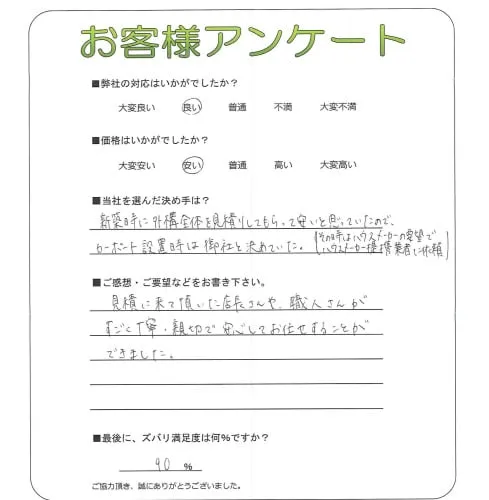 お客様アンケート
■弊社の対応はいかがでしたか？
大変良い 良い 普通 不満 大変不満
■価格はいかがでしたか？
大変安い 安い 普通 高い 大変高い
■当社を選んだ決め手は？
新築時に外構全体を見積りしてもらって安いと思っていたので、
カーポート設置時は御社と決めていた。(その時はハウスメーカーの要望で
ハウスメーカー提携業者に依頼)
■ご感想・ご要望などをお書き下さい。
見積に来て頂いた店長さんや、職人さんが
すごく丁寧・親切で安心してお任せすることが
できました。
■最後に、ズバリ満足度は何％ですか？
90 ％
ご協力頂き、誠にありがとうございました。